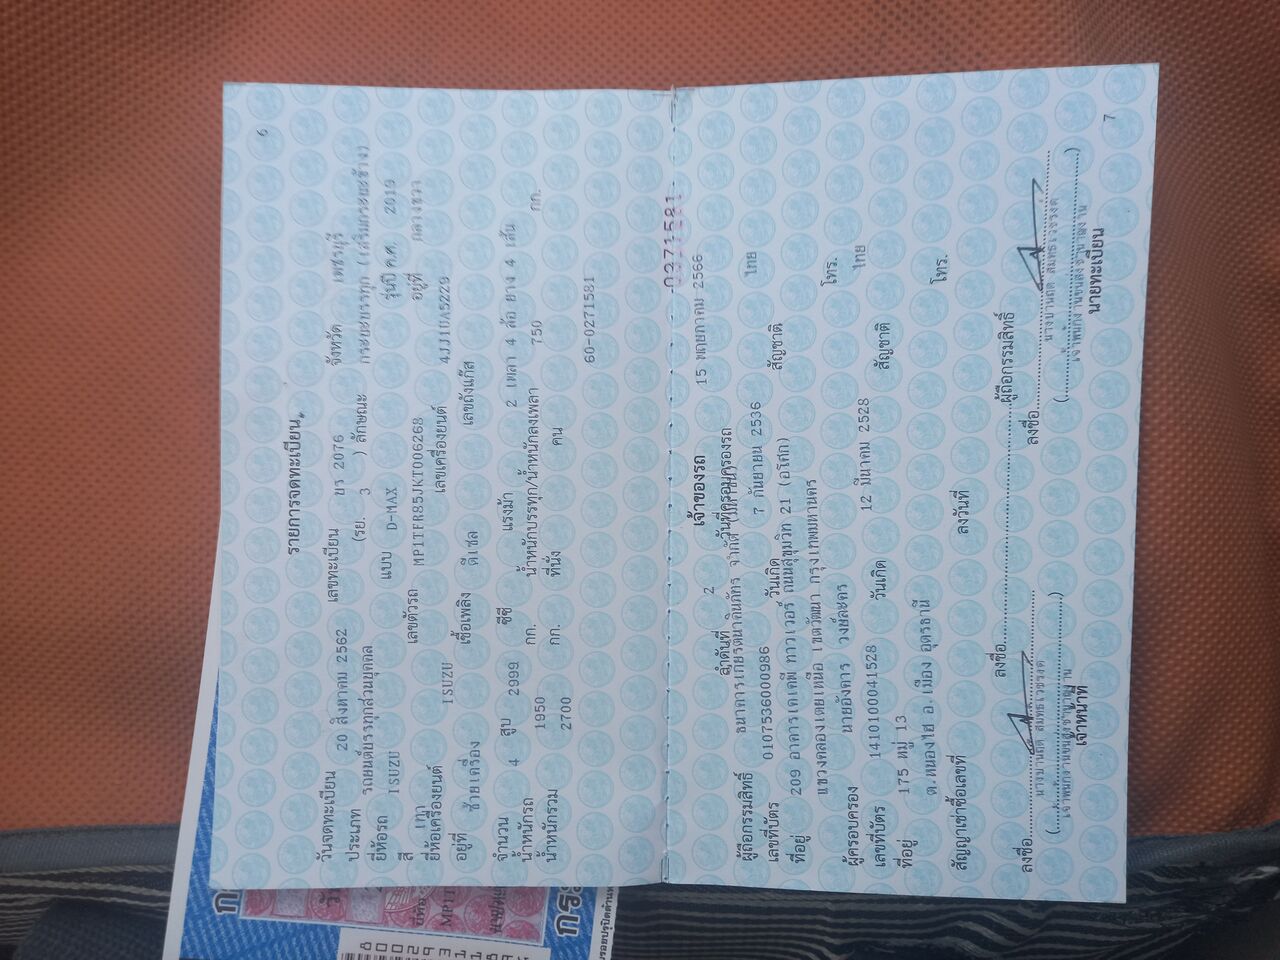 6
รายการจดทะเบียน
วันจดทะเบียน 20 สิงหาคม 2562 เลขทะเบียน ขร 2076 จังหวัด เพชรบุรี
ประเภท รถยนต์บรรทุกส่วนบุคคล (รย. 3 ) ลักษณะ กระบะบรรทุก (เสริมกระบะข้าง)
ยี่ห้อรถ ISUZU แบบ D-MAX รุ่นปี ค.ศ. 2019
สี เทา เลขตัวรถ MP1TFR85JKT006268 อยู่ที่ กลางขวา
ยี่ห้อเครื่องยนต์ ISUZU เลขเครื่องยนต์ 4JJ1UA5229
อยู่ที่ ซ้ายเครื่อง เชื้อเพลิง ดีเซล เลขถังแก๊ส
จำนวน 4 สูบ 2999 ซีซี แรงม้า 2 เพลา 4 ล้อ ยาง 4 เส้น
น้ำหนักรถ 1950 กก. น้ำหนักบรรทุก/น้ำหนักลงเพลา 750 กก.
น้ำหนักรวม 2700 กก. ที่นั่ง คน
60-0271581
0271581
เจ้าของรถ
ลำดับที่ 2 วันที่ครอบครองรถ 15 พฤษภาคม 2566
ผู้ถือกรรมสิทธิ์ ธนาคารเกียรตินาคินภัทร จำกัด (มหาชน)
เลขที่บัตร 0107536000986 วันเกิด 7 กันยายน 2536 สัญชาติ ไทย
ที่อยู่ 209 อาคารเคเคพี ทาวเวอร์ ถนนสุขุมวิท 21 (อโศก)
แขวงคลองเตยเหนือ เขตวัฒนา กรุงเทพมหานคร โทร.
ผู้ครอบครอง นายอังคาร วงษ์ละคร
เลขที่บัตร 1410100041528 วันเกิด 12 มีนาคม 2528 สัญชาติ ไทย
ที่อยู่ 175 หมู่ 13
ต.หนองไฮ อ.เมือง อุดรธานี โทร.
สัญญาเช่าซื้อเลขที่ ลงวันที่
ลงชื่อ ผู้ถือกรรมสิทธิ์
ลงชื่อ ลงชื่อ
เจ้าหน้าที่ นายทะเบียน
7